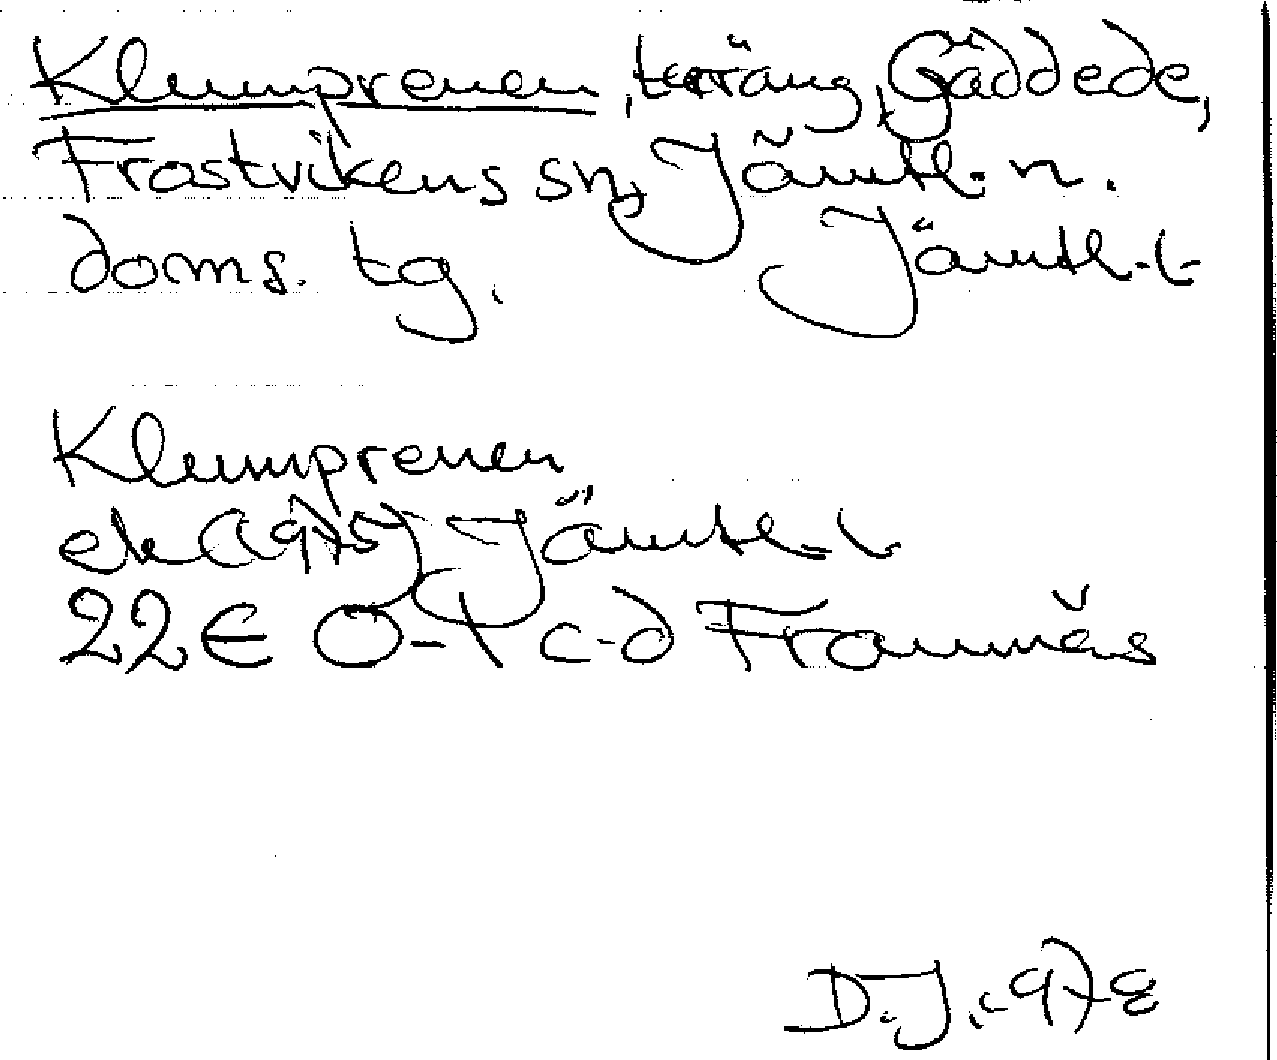 Klumprenen, terräng, Gäddede,
Frostvikens sn, Jämtl. n.
doms. tg. Jämtl. l.
Klumprenen
ek (1975) Jämtl. l.
22E 0-1 c-d Frannäs
D.J. 1978